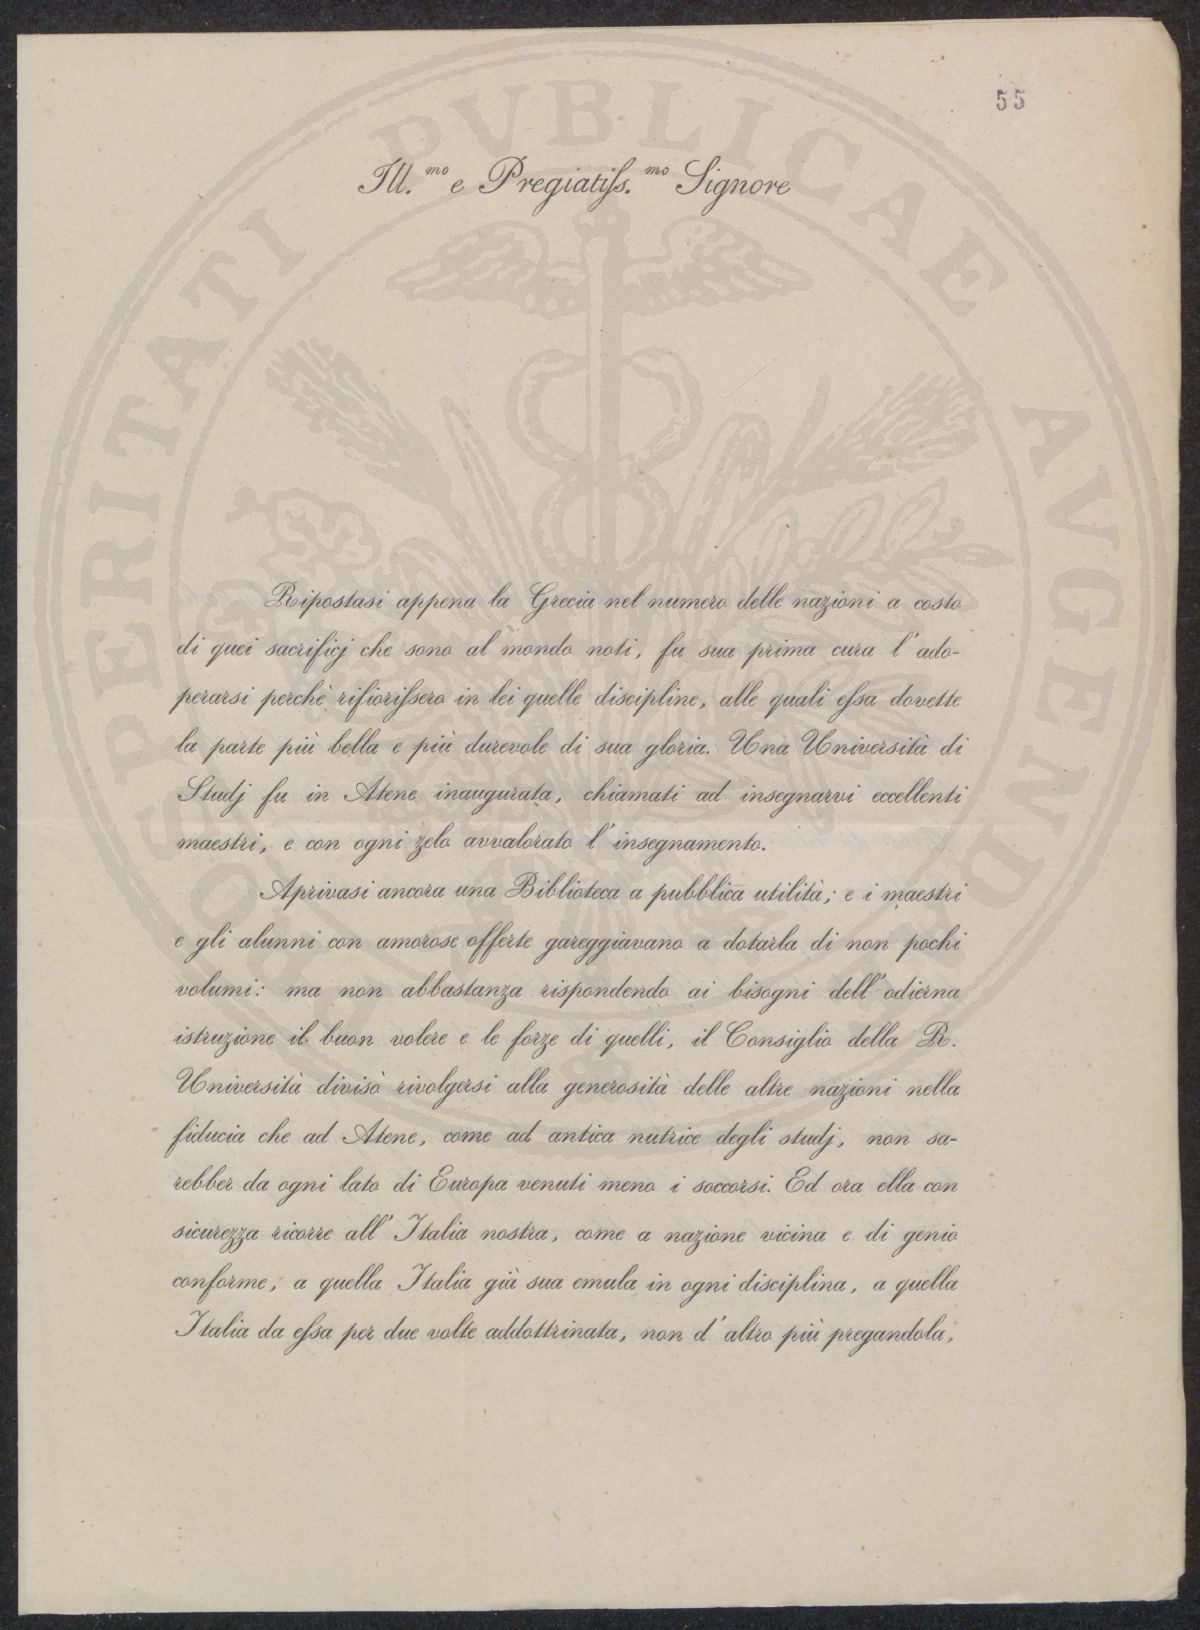 55
PROSPERITATI PVBLICAE AVGENDAE
Ill.mo e Pregiatiſs.mo Signore
Ripostasi appena la Grecia nel numero delle nazioni a costo
di quei sacrificj che sono al mondo noti, fu sua prima cura l'ado-
perarsi perchè rifioriſsero in lei quelle discipline, alle quali eſsa dovette
la parte più bella e più durevole di sua gloria. Una Università di
Studj fu in Atene inaugurata, chiamati ad insegnarvi eccellenti
maestri, e con ogni zelo avvalorato l'insegnamento.
Aprivasi ancora una Biblioteca a pubblica utilità; e i maestri
e gli alunni con amorose offerte gareggiavano a dotarla di non pochi
volumi: ma non abbastanza rispondendo ai bisogni dell'odierna
istruzione il buon volere e le forze di quelli, il Consiglio della R.
Università divisò rivolgersi alla generosità delle altre nazioni nella
fiducia che ad Atene, come ad antica nutrice degli studj, non sa-
rebber da ogni lato di Europa venuti meno i soccorsi. Ed ora ella con
sicurezza ricorre all'Italia nostra, come a nazione vicina e di genio
conforme, a quella Italia già sua emula in ogni disciplina, a quella
Italia da eſsa per due volte addottrinata, non d'altro più pregandola,